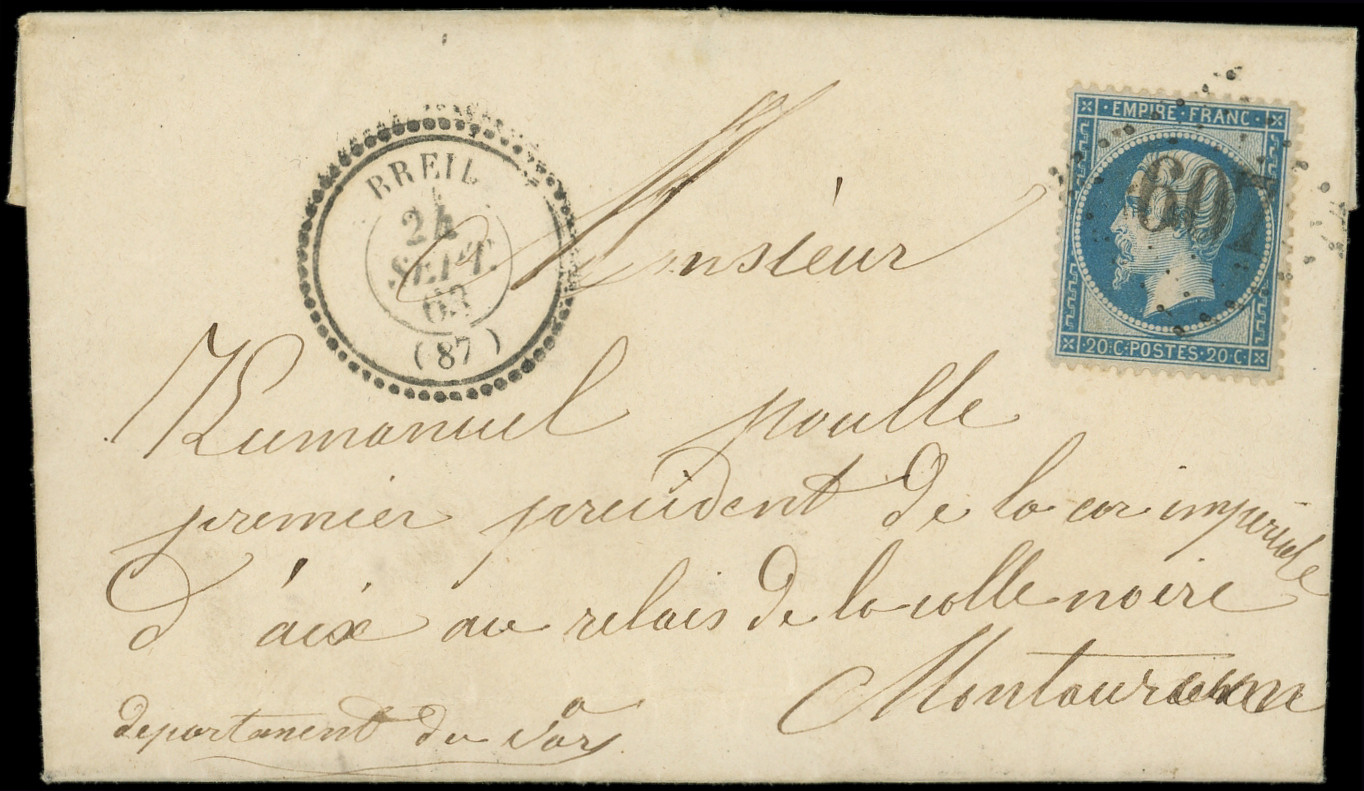 BREIL
24
SEPT.
63
(87)
EMPIRE FRANC
607
20·C·POSTES·20·C
Monsieur
Emanuel poulle
premier president de la cor imperiale
d'aix au relais de la colle noire
Montauroux
departement du var